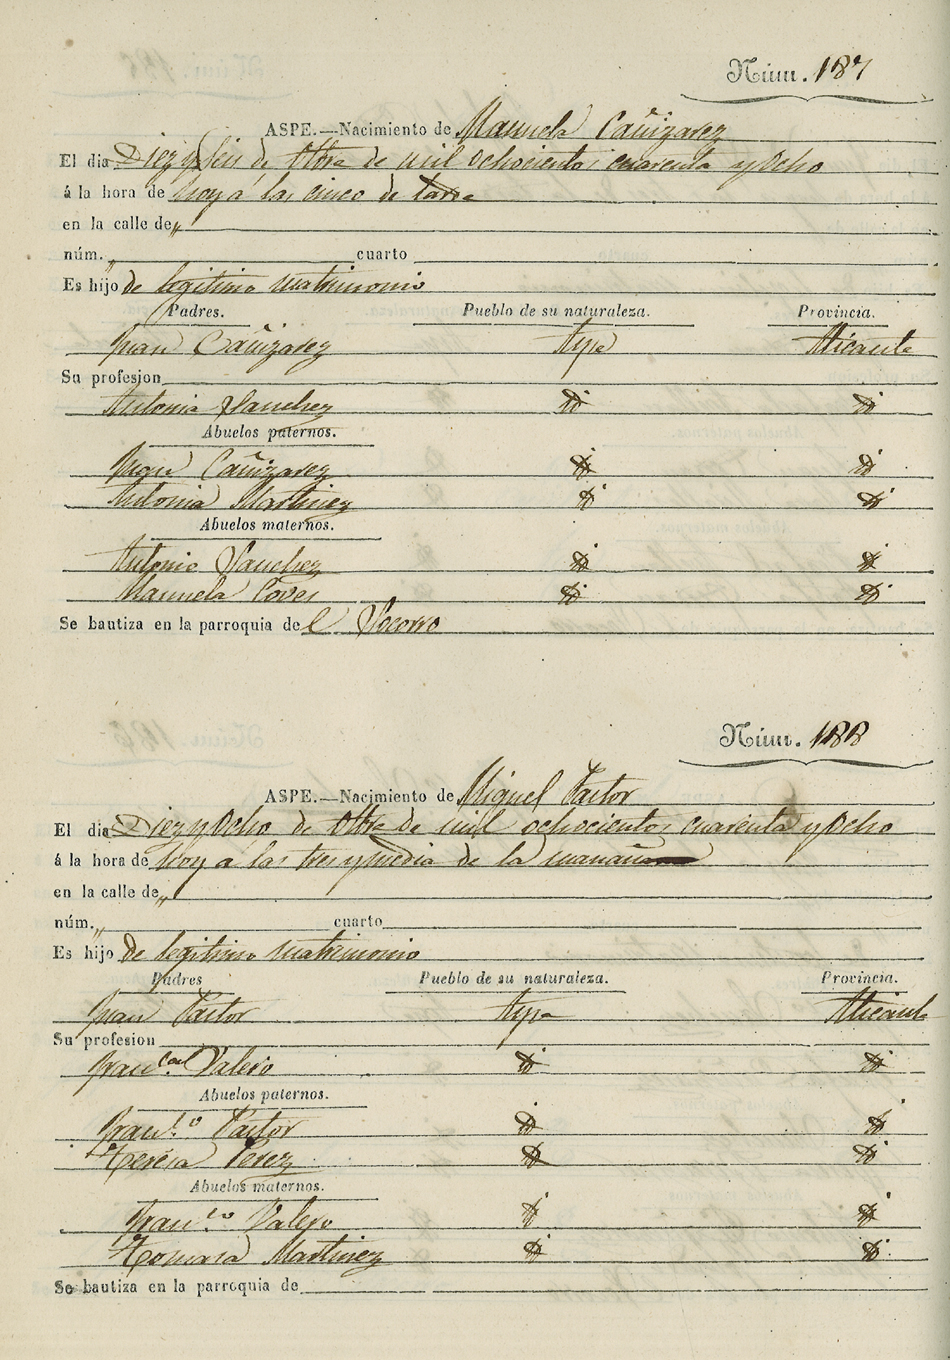 Núm. 187
ASPE.—Nacimiento de Manuela Cañizarez
El dia Diez y Seis de Otbre de mil ochocientos cuarenta y Ocho
á la hora de hoy á las cinco de tarde
en la calle de „
núm. „ cuarto
Es hijo de legitimo matrimonio
Padres. Pueblo de su naturaleza. Provincia.
Juan Cañizarez Aspe Alicante
Su profesion
Antonia Sanchez id id
Abuelos paternos.
Juan Cañizarez id id
Antonia Martinez id id
Abuelos maternos.
Antonio Sanchez id id
Manuela Coves id id
Se bautiza en la parroquia de l Socorro
Núm. 188
ASPE.—Nacimiento de Miguel Pastor
El dia Diez y Ocho de Otbre de mil ochocientos cuarenta y Ocho
á la hora de hoy á las tres y media de la mañana
en la calle de „
núm. „ cuarto
Es hijo de legitimo matrimonio
Padres Pueblo de su naturaleza. Provincia.
Juan Pastor Aspe Alicante
Su profesion
Fran.ca Valero id id
Abuelos paternos.
Fran.co Pastor id id
Teresa Perez id id
Abuelos maternos.
Fran.co Valero id id
Tomasa Martinez id id
Se bautiza en la parroquia de